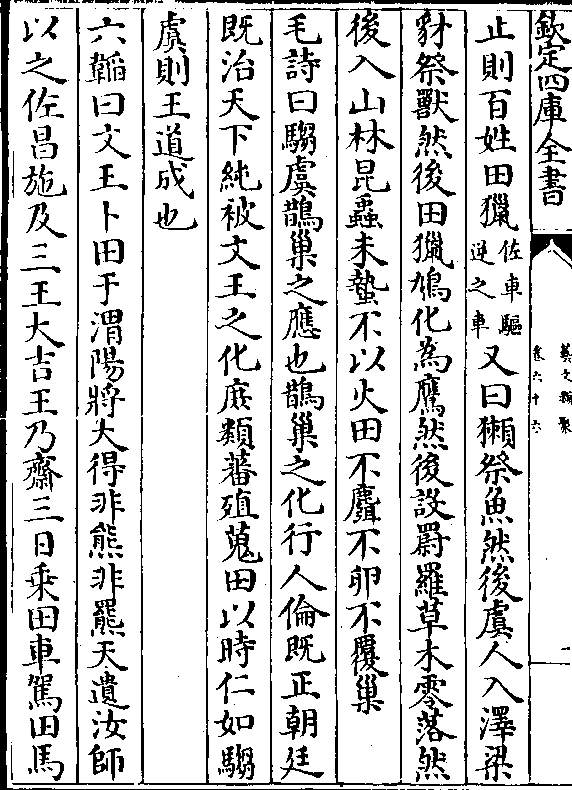 欽定四庫全書
藝文類聚
卷六十六
二
止則百姓田獵佐車驅逆之車又曰獺祭魚然後虞人入澤梁
豺祭獸然後田獵鳩化為鷹然後設罻羅草木零落然
後入山林昆蟲未蟄不以火田不麛不卵不覆巢
毛詩曰騶虞鵲巢之應也鵲巢之化行人倫既正朝廷
既治天下純被文王之化庶類蕃殖蒐田以時仁如騶
虞則王道成也
六韜曰文王卜田于渭陽將大得非熊非羆天遺汝師
以之佐昌施及三王大吉王乃齋三日乗田車駕田馬